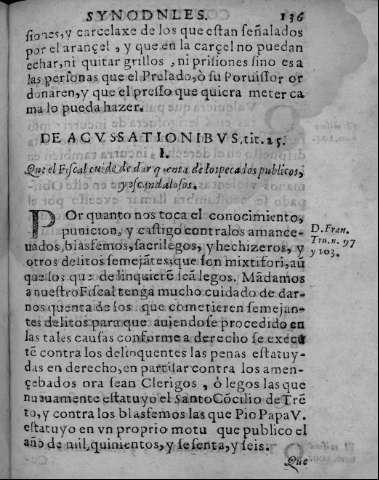 SYNODNLES. 136
siones, y carcelaxe de los que estan señalados
por el arançel, y que en la carçel no puedan
echar, ni quitar grillos, ni prisiones sino es a
las personas que el Prelado, ò su Poruissor or
donaren, y que el presso que quiera meter ca
ma lo pueda hazer.
DE ACVSSATIONIBVS, tit. 25.
I.
Que el Fiscal cuide de dar quenta de los pecados publicos,
y escandalosos.
POr quanto nos toca el conocimiento,
punicion, y castigo contra los amance-
uados, blasfemos, sacrilegos, y hechizeros, y
otros delitos semejãtes, que son mixtifori, aũ
que los que delinquierẽ seã legos. Mãdamos
a nuestro Fiscal tenga mucho cuidado de dar-
nos quenta de los que cometieren semejan-
tes delitos para que auiendose procedido en
las tales causas conforme a derecho se execu
tẽ contra los delinquentes las penas estatuy-
das en derecho, en partilar contra los amen-
çebados ora sean Clerigos, ò legos las que
nueuamente estatuyo el Santo Cõcilio de Trẽ
to, y contra los blasfemos las que Pio Papa V.
estatuyo en vn proprio motu que publico el
año de mil, quinientos, y sesenta, y seis.
Que
D. Fran.
Trn. n. 97
y 103.